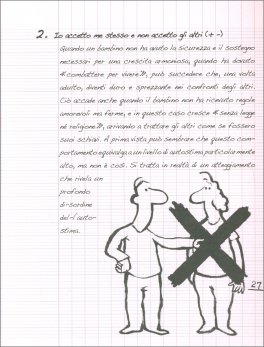 2. Io accetto me stesso e non accetto gli altri (+ -)
Quando un bambino non ha avuto la sicurezza e il sostegno
necessari per una crescita armoniosa, quando ha dovuto
«combattere per vivere», può succedere che, una volta
adulto, diventi duro e sprezzante nei confronti degli altri.
Ciò accade anche quando il bambino non ha ricevuto regole
amorevoli ma ferme, e in questo caso cresce «senza legge
né religione», arrivando a trattare gli altri come se fossero
suoi schiavi. A prima vista può sembrare che questo com-
portamento equivalga a un livello di autostima particolarmente
alto, ma non è così. Si tratta in realtà di un atteggiamento
che rivela un
profondo
disordine
del-l'auto-
stima.
27